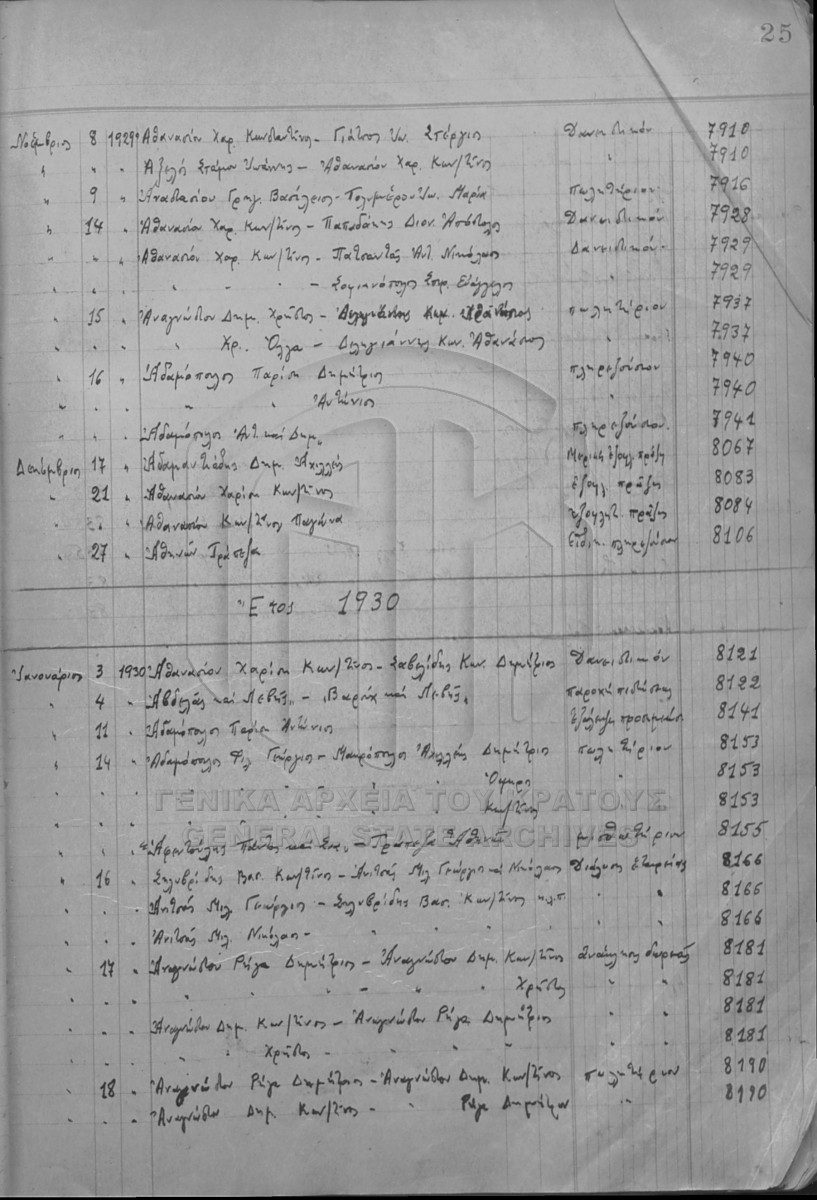 25
Νοέμβριος 8 1929 Αθανασίου Χαρ. Κωνσταντίνος - Γιάτσος Ιω. Στέργιος Δανειστικόν 7910
" " " Στάμου Ιωάννης - Αθανασίου Χαρ. Κων/τίνος " 7910
" 9 " Αναστασίου Γρηγ. Βασίλειος - Ιω. Μαρία πωλητήριον 7916
" 14 " Αθανασίου Χαρ. Κων/τίνος - Παπαδάκης Διον. Απόστολος Δανειστικόν 7928
" " " Αθανασίου Χαρ. Κων/τίνος - Πατσαντάς Αντ. Νικόλαος Δανειστικόν 7929
" " " " - Σπυρ. Ευάγγελος " 7929
" 15 " Αναγνώστου Δημ. Χρήστος - Δεληγιάννης Κων. Αθανάσιος πωλητήριον 7937
" " " " Χρ. Όλγα - Δεληγιάννης Κων. Αθανάσιος " " 7937
" 16 " Αδαμόπουλος Παρίση Δημήτριος πληρεξούσιον 7940
" " " " " Αντώνιος " 7940
" " " Αδαμόπουλος Αντ. και Δημ. πληρεξούσιον 7941
Δεκέμβριος 17 " Αδαμαντιάδης Δημ. Αχιλλεύς Μερική εξοφλ. πράξη 8067
" 21 " Αθανασίου Χαρίση Κων/τίνος εξοφλ. πράξις 8083
" " " Αθανασίου Κων/τίνος Παγώνα εξοφλητ. πράξις 8084
" 27 " Αθηνών Τράπεζα Ειδικ. πληρεξούσιον 8106
Έτος 1930
Ιανουάριος 3 1930 Αθανασίου Χαρίση Κων/τίνος - Σαβελίδης Κων. Δημήτριος Δανειστικόν 8121
" 4 " Αβδελάς και Λεβής - Βαρούχ και Λεβής παροχή πιστώσεως 8122
" 11 " Αδαμόπουλος Παρίση Αντώνιος Εξάλειψις προσημειώσ. 8141
" 14 " Αδαμόπουλος Φιλ. Γεώργιος - Μαυρόπουλος Αχιλλέως Δημήτριος πωλητήριον 8153
" " " " " " Όμηρος " 8153
" " " " " " Κων/τίνος " 8153
" " Παντ. και Σπ. - Τράπεζα Αθηνών μισθωτήριον 8155
" 16 " Σηλυβρίδης Βασ. Κων/τίνος - Αντσάς Μιλ. Γεώργιος και Νικόλαος Διάλυσις εταιρείας 8166
" " " Αντσάς Μιλ. Γεώργιος - Σηλυβρίδης Βασ. Κων/τίνος κλπ " " 8166
" " " Αντσάς Μιλ. Νικόλαος - " " " " " 8166
" 17 " Αναγνώστου Ρήγα Δημήτριος - Αναγνώστου Δημ. Κων/τίνος Ανάκλησις δωρεάς 8181
" " " " " " - " " Χρήστος " " 8181
" " " Αναγνώστου Δημ. Κων/τίνος - Αναγνώστου Ρήγα Δημήτριος " " 8181
" " " " " Χρήστος - " " " " " 8181
" 18 " Αναγνώστου Ρήγα Δημήτριος - Αναγνώστου Δημ. Κων/τίνος πωλητήριον 8190
" " " Αναγνώστου Δημ. Κων/τίνος - " Ρήγα Δημήτριον " 8190
ΓΕΝΙΚΑ ΑΡΧΕΙΑ ΤΟΥ ΚΡΑΤΟΥΣ
GENERAL STATE ARCHIVES